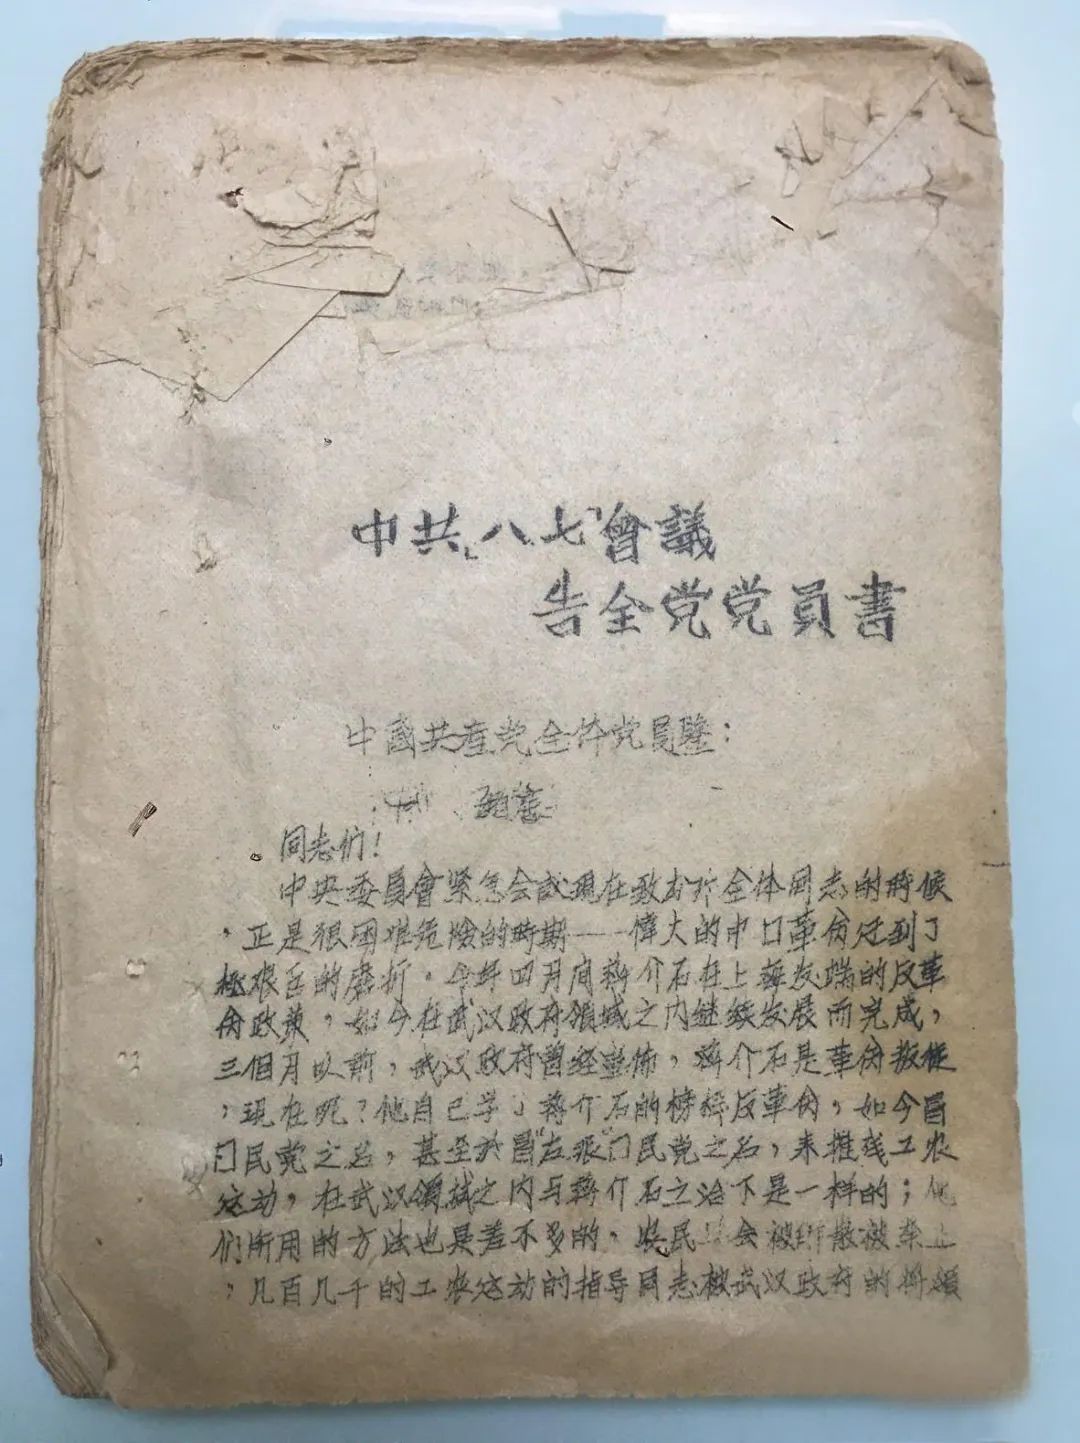 中共「八七」會議
告全党党員書
中國共產党全体党員鑒：
同志们！
中央委員會紧急会议现在致书於全体同志的時候
，正是很困难危險的時期——偉大的中囗革命Z到了
极艰巨的磨折。今年四月间蒋介石在上海发端的反革
命政策，如今在武汉政府領域之内继续发展而完成，
三個月以前，武汉政府曾经宣佈，蒋介石是革命叛徒
，现在呢？他自己学了蒋介石的榜样反革命，如今冒
囗民党之名，甚至於冒“左派”囗民党之名，来摧残工农
运动，在武汉領域之内与蒋介石之治下是一样的；他
们所用的方法也是差不多的。農民 会被 散被禁止
，几百几千的工农运动的指导同志被武汉政府的将領